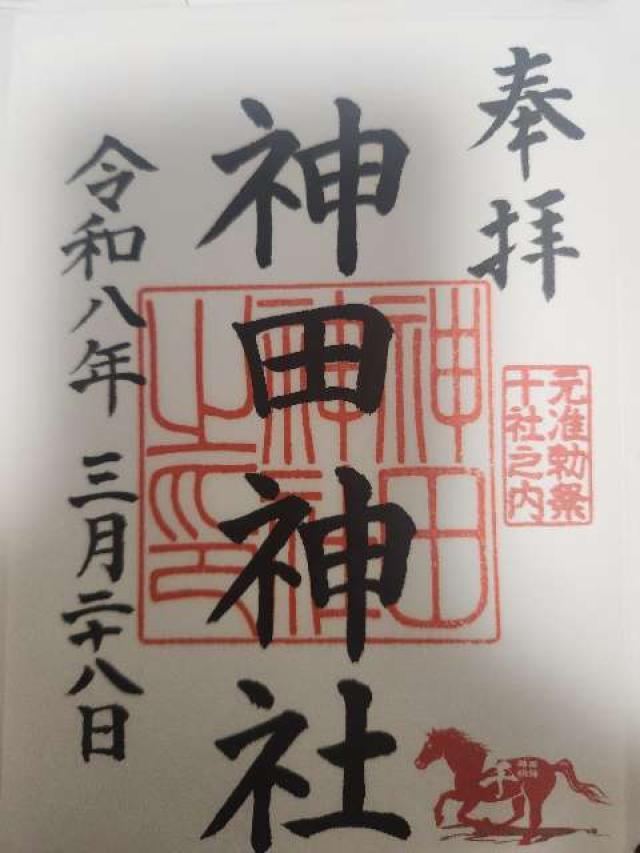 奉拝
元准勅祭
十社之内
神田神社
神田
神社
之印
令和八年 三月二十八日